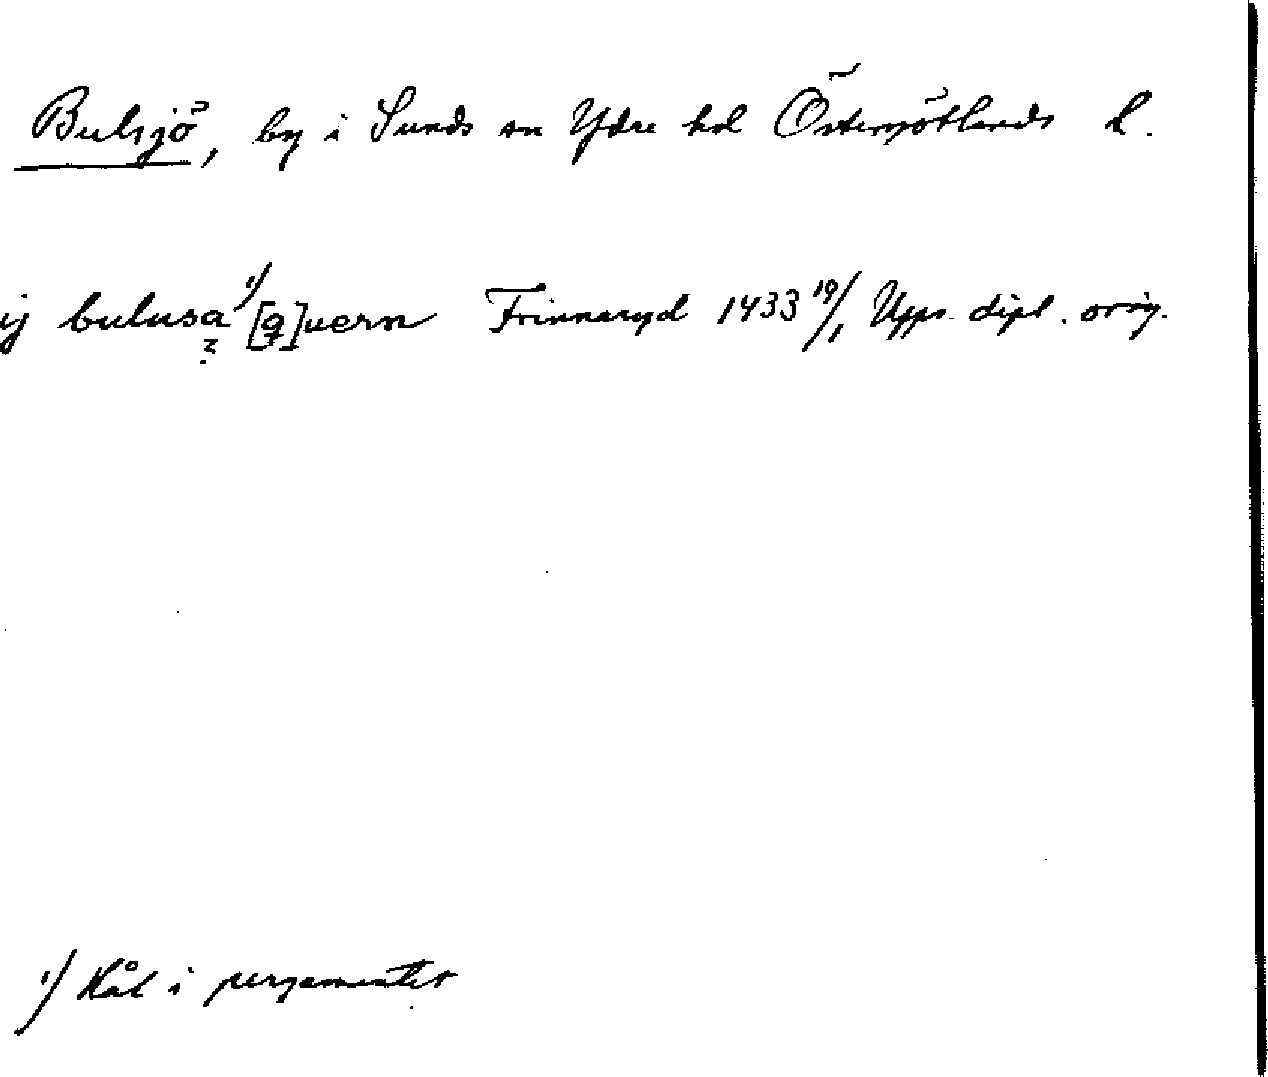 Bulsjö, by i Sunds sn Ydre hd Östergötlands l.
ij bulusa ¹⁾ [q]uern Frinnaryd 1433 19/1 Upps. dipl. orig.
?
¹⁾ Hål i pergamentet